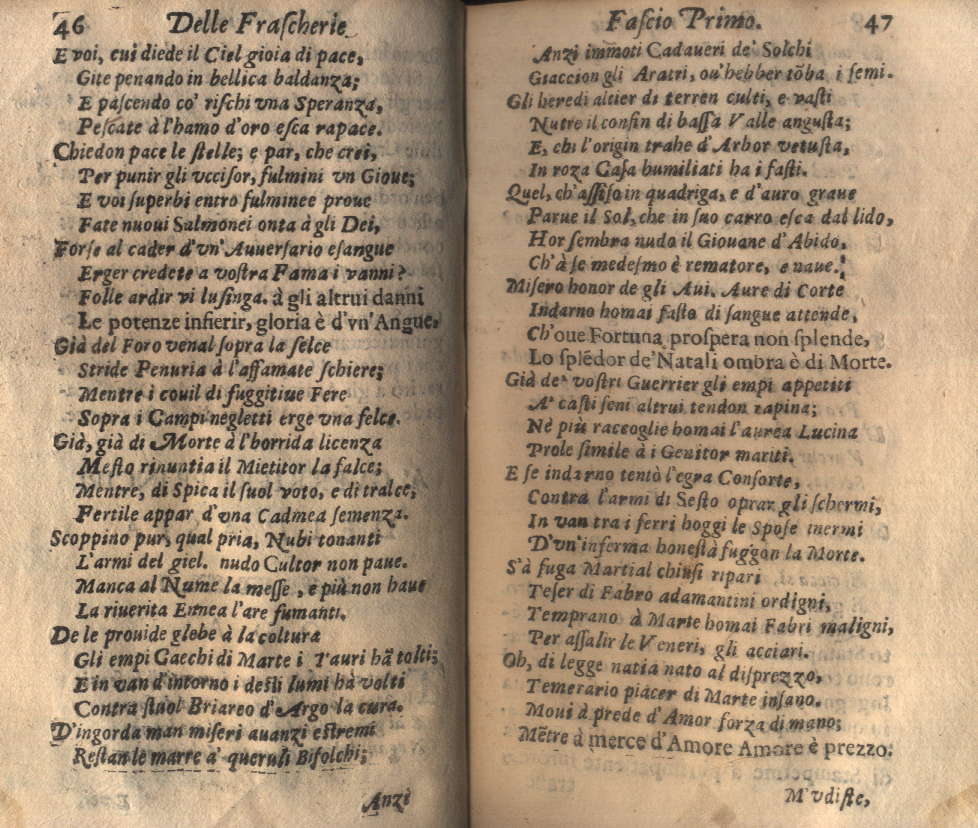 46 Delle Fraſcherie
E voi, cui diede il Ciel gioia di pace,
Gite penando in bellica baldanza;
E paſcendo co' riſchi vna Speranza,
Peſcate à l'hamo d'oro eſca rapace.
Chiedon pace le ſtelle; e par, che crei,
Per punir gli vcciſor, fulmini vn Gioue;
E voi ſuperbi entro fulminee proue
Fate nuoui Salmonei onta à gli Dei,
Forſe al cader d'vn'Auuerſario eſangue
Erger credete a voſtra Fama i vanni?
Folle ardir vi luſinga. à gli altrui danni
Le potenze inſierir, gloria è d'vn'Angue.
Già del Foro venal ſopra la ſelce
Stride Penuria à l'affamate ſchiere;
Mentre i couil di fuggitiue Fere
Sopra i Campi negletti erge vna felce.
Già, già di Morte à l'horrida licenza
Meſto rinuntia il Mietitor la falce;
Mentre, di Spica il ſuol voto, e di tralce,
Fertile appar d'vna Cadmea ſemenza.
Scoppino pur, qual pria, Nubi tonanti
L'armi del giel. nudo Cultor non paue.
Manca al Nume la meſſe, e più non haue
La riuerita Ennea l'are fumanti.
De le prouide glebe à la coltura
Gli empi Caechi di Marte i Tauri hā tolti;
E in van d'intorno i deſti lumi hà volti
Contra ſtuol Briareo d'Argo la cura.
D'ingorda man miſeri auanzi eſtremi
Reſtan le marre a' queruli Bifolchi;
Anzi
Faſcio Primo. 47
Anzi immoti Cadaueri de' Solchi
Giaccion gli Aratri, ou'hebber tōba i ſemi.
Gli heredi altier di terren culti, e vaſti
Nutre il confin di baſſa Valle anguſta;
E, chi l'origin trahe d'Arbor vetuſta,
In roza Caſa humiliati ha i faſti.
Quel, ch'aſſiſo in quadriga, e d'auro graue
Parue il Sol, che in ſuo carro eſca dal lido,
Hor ſembra nudo il Giouane d'Abido,
Ch'à ſe medeſmo è rematore, e naue.
Miſero honor de gli Aui. Aure di Corte
Indarno homai faſto di ſangue attende,
Ch'oue Fortuna proſpera non ſplende,
Lo ſplēdor de'Natali ombra è di Morte.
Già de' voſtri Guerrier gli empi appetiti
A' caſti ſeni altrui tendon rapina;
Nè più raccoglie homai l'aurea Lucina
Prole ſimile à i Genitor mariti.
E ſe indarno tentò l'egra Conſorte,
Contra l'armi di Seſto oprar gli ſchermi,
In van tra i ferri hoggi le Spoſe inermi
D'vn'inferma honeſtà fuggon la Morte.
S'à fuga Martial chiuſi ripari
Teſer di Fabro adamantini ordigni,
Temprano à Marte homai Fabri maligni,
Per aſſalir le Veneri, gli acciari.
Oh, di legge natia nato al diſprezzo,
Temerario piacer di Marte inſano.
Moui à prede d'Amor forza di mano;
Mētre à merce d'Amore Amore è prezzo.
M'vdiſte,